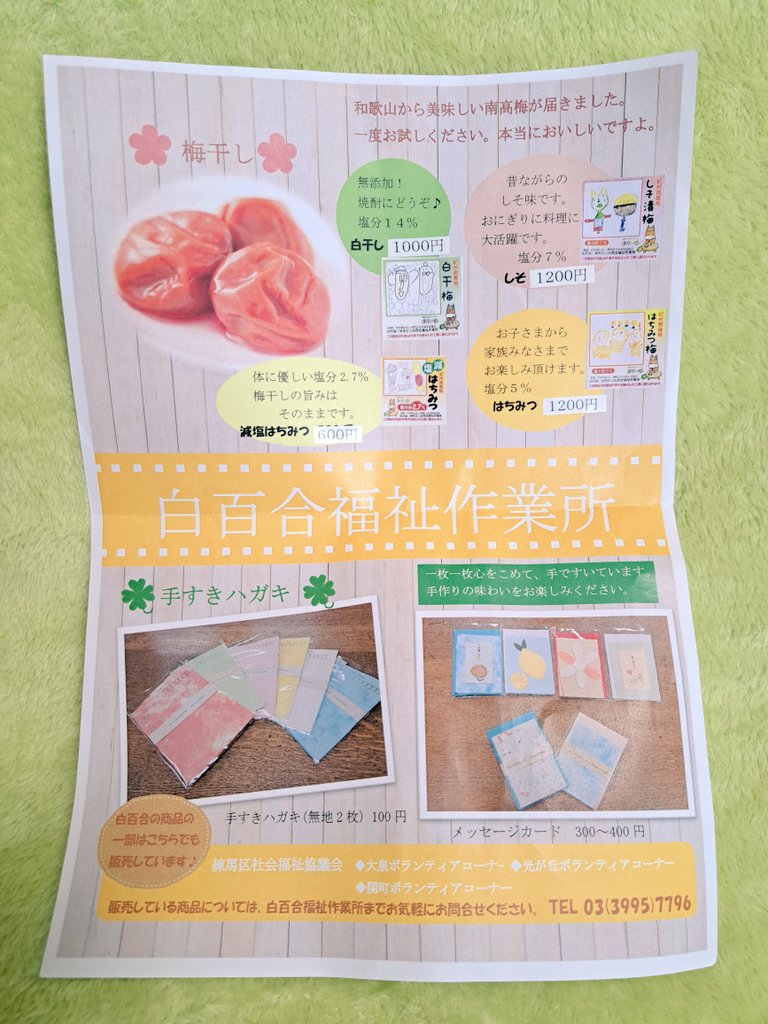 和歌山から美味しい南高梅が届きました。
一度お試しください。本当においしいですよ。
梅干し
無添加！
焼酎にどうぞ♪
塩分１４％
白干し 1000円
白干梅
昔ながらの
しそ味です。
おにぎりに料理に
大活躍です。
塩分７％
しそ 1200円
しそ漬梅
体に優しい塩分2.7％
梅干しの旨みは
そのままです。
減塩はちみつ 600円
減塩
はちみつ
お子さまから
家族みなさまで
お楽しみ頂けます。
塩分５％
はちみつ 1200円
はちみつ梅
白百合福祉作業所
手すきハガキ
一枚一枚心をこめて、手ですいています。
手作りの味わいをお楽しみください。
手すきハガキ(無地２枚) 100円
メッセージカード 300～400円
白百合の商品の
一部はこちらでも
販売しています♪
練馬区社会福祉協議会 ◆大泉ボランティアコーナー ◆光が丘ボランティアコーナー
◆関町ボランティアコーナー
販売している商品については、白百合福祉作業所までお気軽にお問合せください。 TEL 03(3995)7796